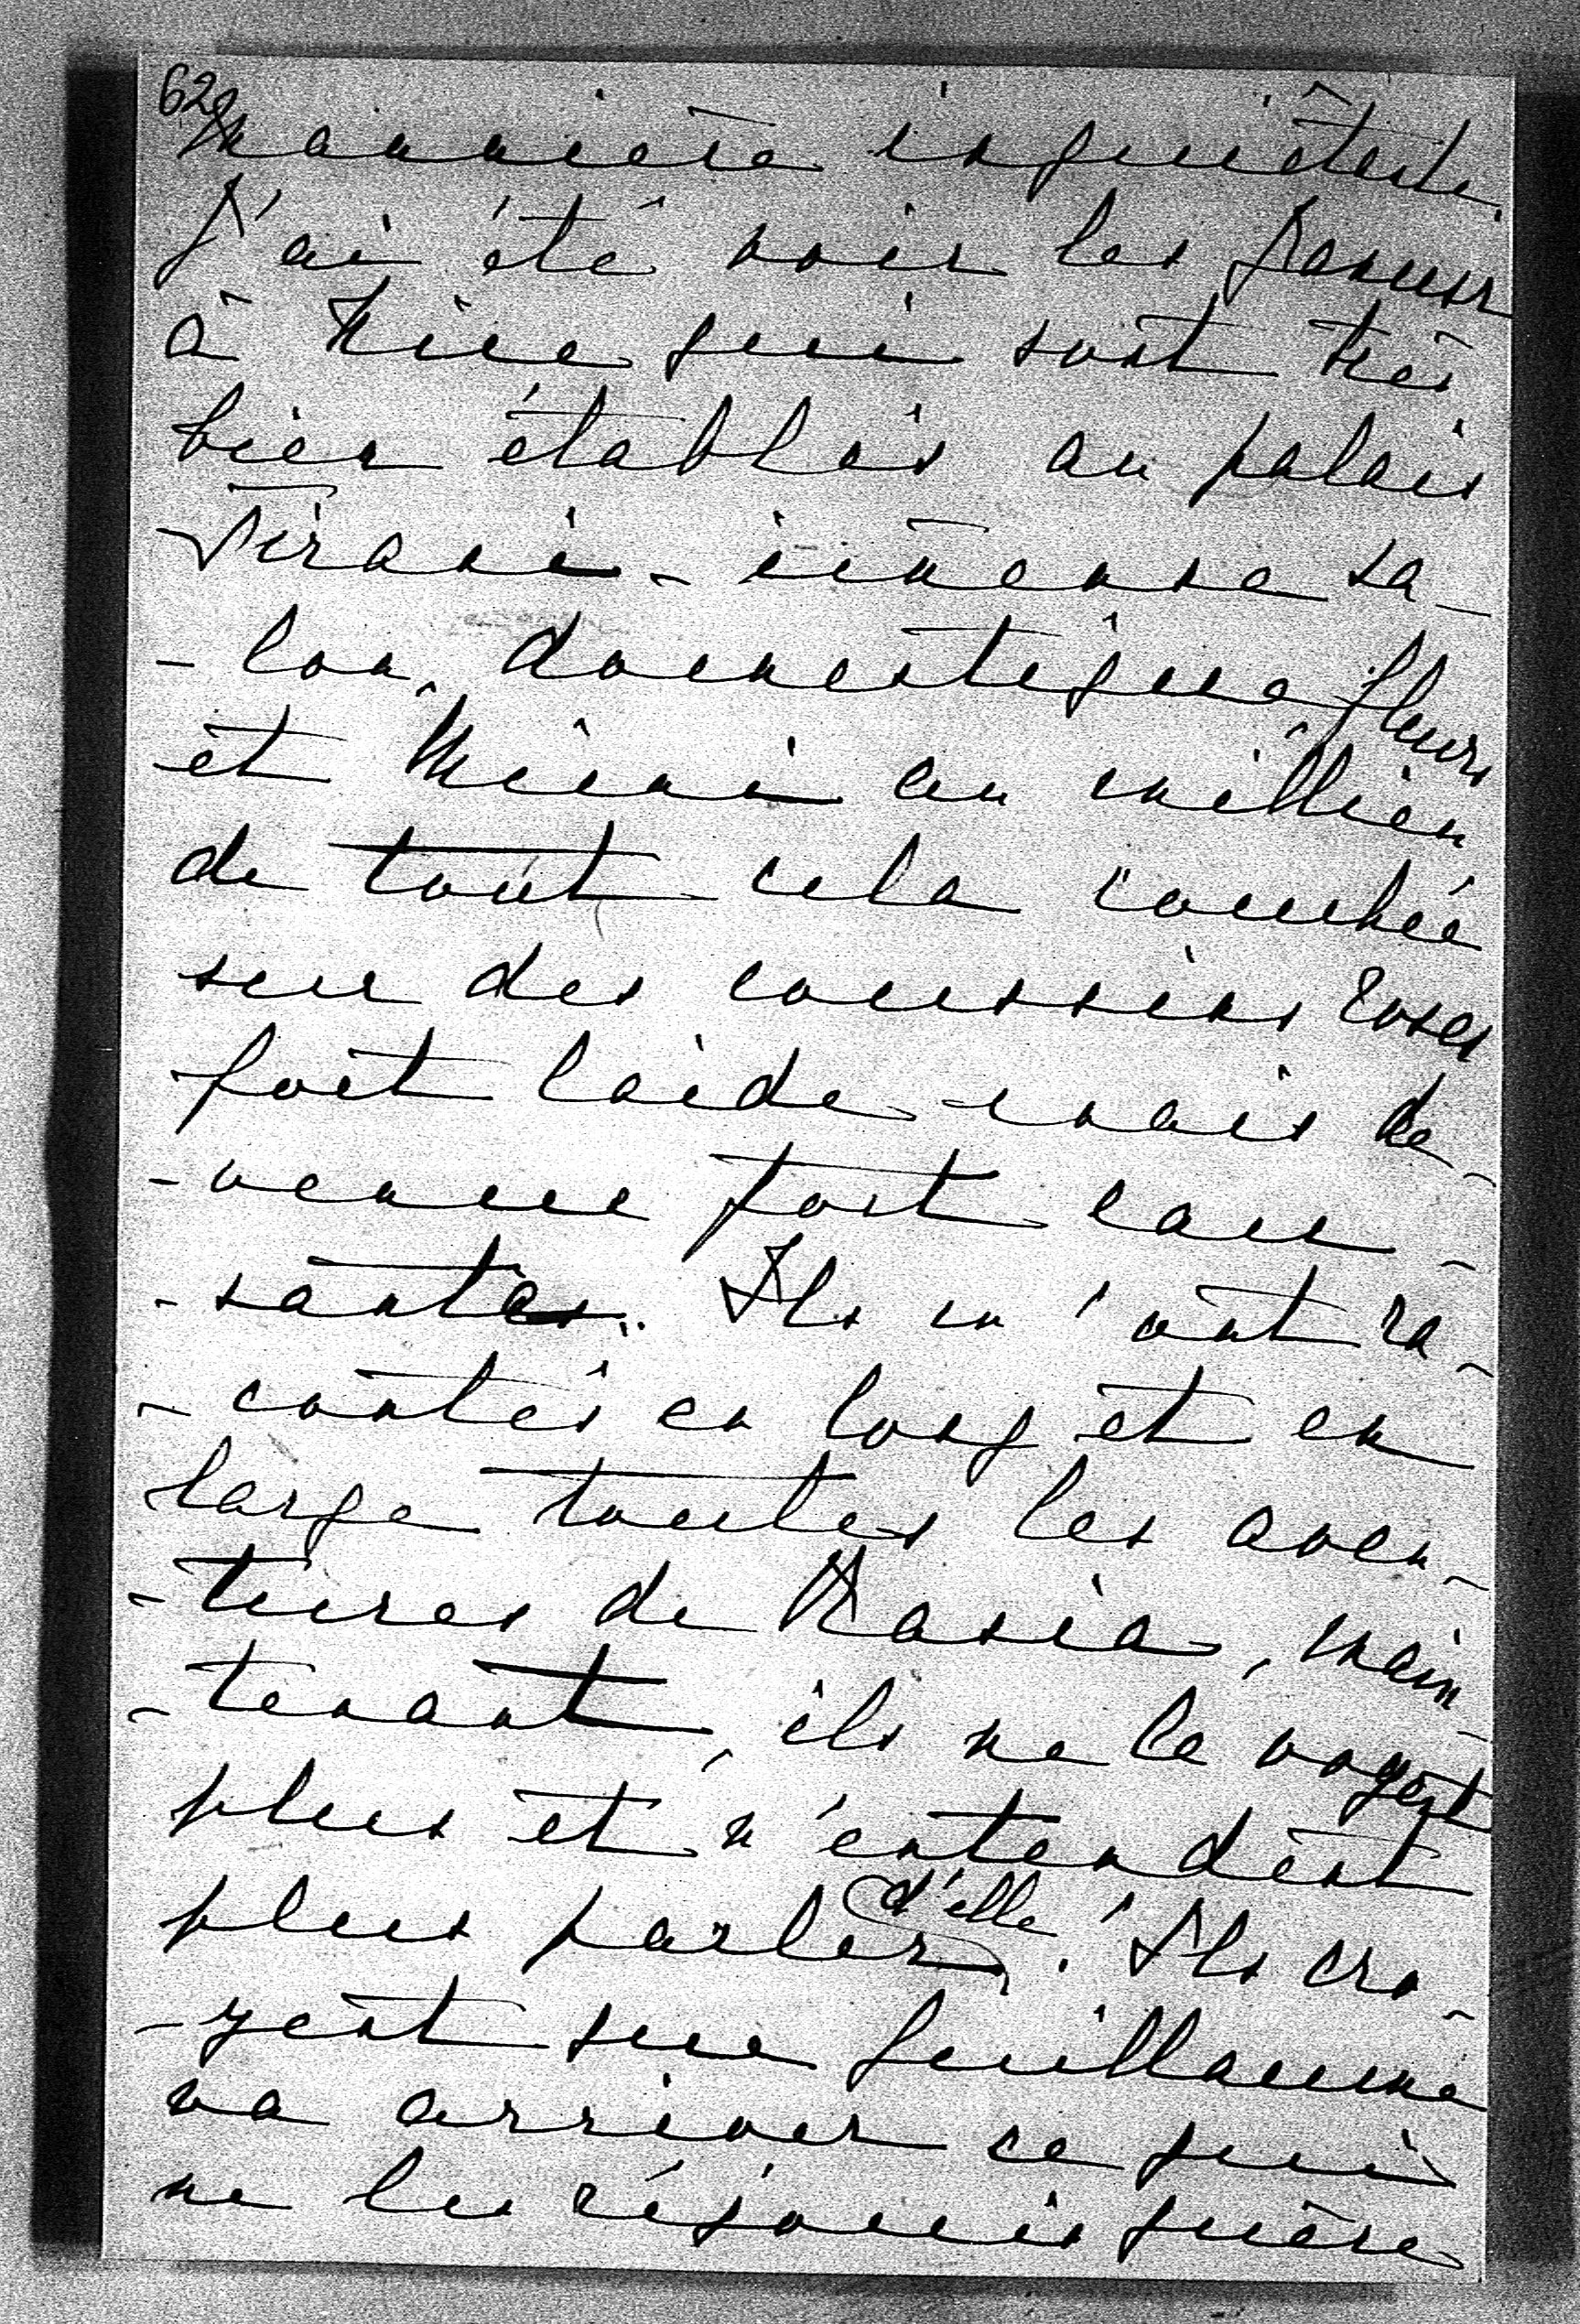 62
manière inquiétante.
J'ai été voir les
à Nice qui sont très
bien établis au palais
Tirani - immense sa-
-lon, domestique, fleurs
et Mimi au millieu
de tout cela couchée
sur des coussins roses
fort laide mais de-
-venue fort cau-
-sante. Ils m'ont ra-
-contés en long et en
large toutes les aven-
-tures de Maria, main-
-tenant, ils ne la voyent
plus et n'entendent
plus parler d'elle. Ils cro-
-yent que Guillaume
va arriver ce qui
ne les réjouis guère